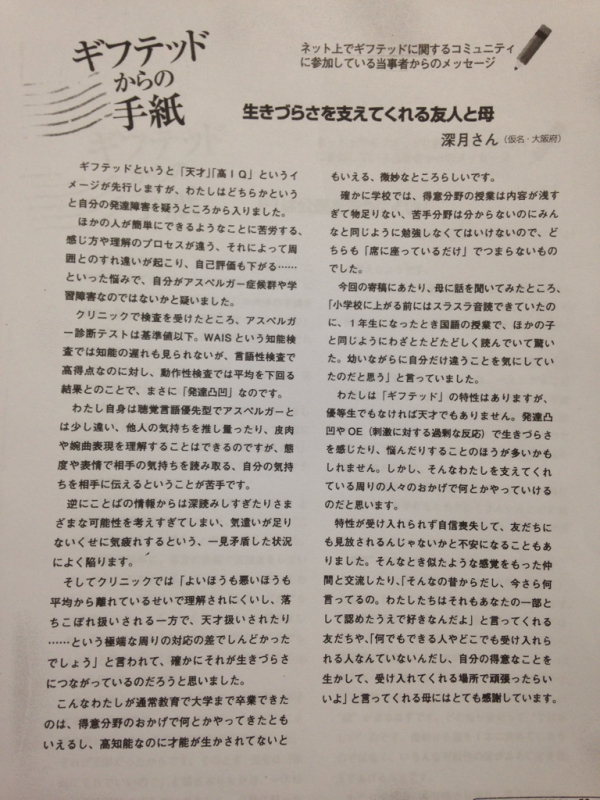 ギフテッド
からの
手紙
ネット上でギフテッドに関するコミュニティ
に参加している当事者からのメッセージ
生きづらさを支えてくれる友人と母
深月さん（仮名・大阪府）
ギフテッドというと「天才」「高ＩＱ」というイ
メージが先行しますが、わたしはどちらかという
と自分の発達障害を疑うところから入りました。
ほかの人が簡単にできるようなことに苦労する、
感じ方や理解のプロセスが違う、それによって周
囲とのすれ違いが起こり、自己評価も下がる……
といった悩みで、自分がアスペルガー症候群や学
習障害なのではないかと疑いました。
クリニックで検査を受けたところ、アスペルガ
ー診断テストは基準値以下。WAISという知能検
査では知能の遅れも見られないが、言語性検査で
高得点なのに対し、動作性検査では平均を下回る
結果とのことで、まさに「発達凸凹」なのです。
わたし自身は聴覚言語優先型でアスペルガーと
は少し違い、他人の気持ちを推し量ったり、皮肉
や婉曲表現を理解することはできるのですが、態
度や表情で相手の気持ちを読み取る、自分の気持
ちを相手に伝えるということが苦手です。
逆にことばの情報からは深読みしすぎたりさま
ざまな可能性を考えすぎてしまい、気遣いが足り
ないくせに気疲れするという、一見矛盾した状況
によく陥ります。
そしてクリニックでは「よいほうも悪いほうも
平均から離れているせいで理解されにくいし、落
ちこぼれ扱いされる一方で、天才扱いされたり
……という極端な周りの対応の差でしんどかった
でしょう」と言われて、確かにそれが生きづらさ
につながっているのだろうと思いました。
こんなわたしが通常教育で大学まで卒業できた
のは、得意分野のおかげで何とかやってきたとも
いえるし、高知能なのに才能が生かされてないと
もいえる、微妙なところらしいです。
確かに学校では、得意分野の授業は内容が浅す
ぎて物足りない、苦手分野は分からないのにみん
なと同じように勉強しなくてはいけないので、ど
ちらも「席に座っているだけ」でつまらないもの
でした。
今回の寄稿にあたり、母に話を聞いてみたところ、
「小学校に上がる前にはスラスラ音読できていたの
に、１年生になったとき国語の授業で、ほかの子
と同じようにわざとたどたどしく読んでいて驚い
た。幼いながらに自分だけ違うことを気にしてい
たのだと思う」と言っていました。
わたしは「ギフテッド」の特性はありますが、
優等生でもなければ天才でもありません。発達凸
凹やOE（刺激に対する過剰な反応）で生きづらさ
を感じたり、悩んだりすることのほうが多いかも
しれません。しかし、そんなわたしを支えてくれ
ている周りの人々のおかげで何とかやっていける
のだと思います。
特性が受け入れられず自信喪失して、友だちに
も見放されるんじゃないかと不安になることもあ
りました。そんなとき似たような感覚をもった仲
間と交流したり、「そんなの昔からだし、今さら何
言ってるの。わたしたちはそれもあなたの一部と
して認めたうえで好きなんだよ」と言ってくれる
友だちや、「何でもできる人やどこでも受け入れら
れる人なんていないんだし、自分の得意なことを
生かして、受け入れてくれる場所で頑張ったらい
いよ」と言ってくれる母にはとても感謝しています。